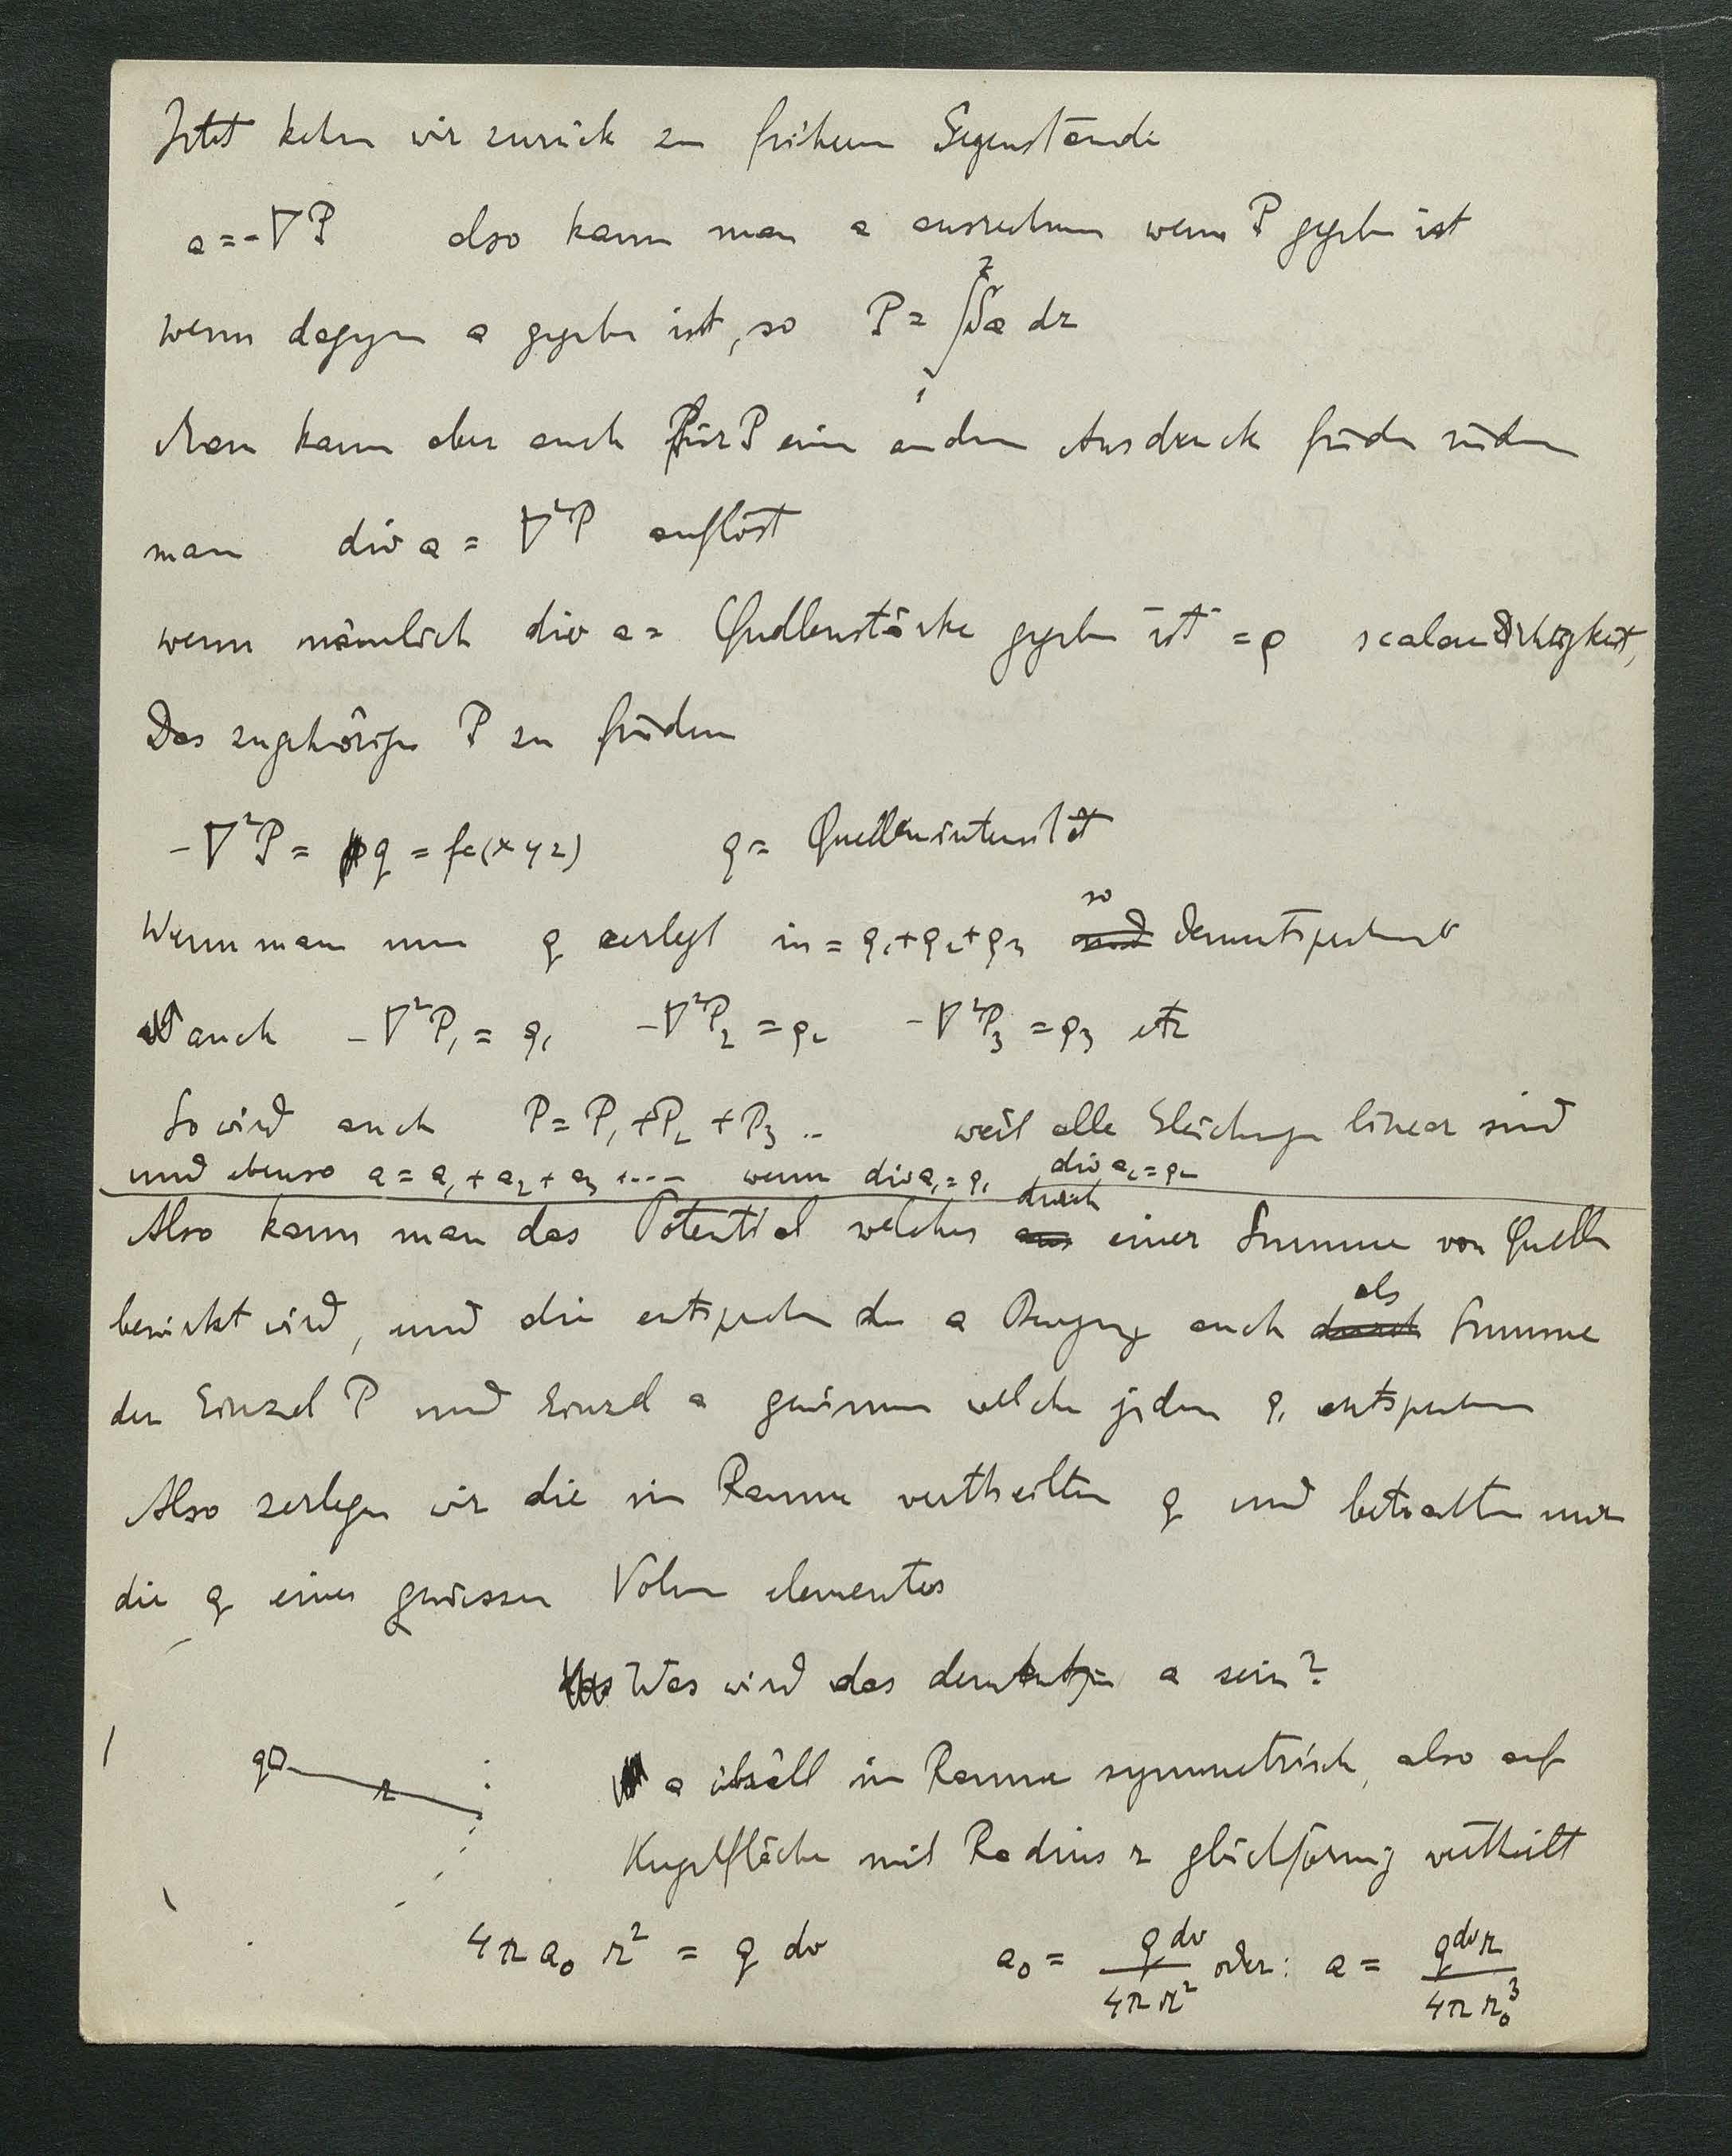 Jetzt kehren wir zurück zum früheren Gegenstande
a = -∇P also kann man a ausrechnen wenn P gegeben ist
wenn dagegen a gegeben ist, so P = ∫ a dr
2
1
Man kann aber auch für P einen anderen Ausdruck finden indem
man div a = ∇²P auflöst
wenn nämlich div a = Quellenstärke gegeben ist = ρ scalare
Das zugehörige P zu finden
-∇²P = q = fc(xyz) q = Quellenintensität
Wenn man nun q zerlegt in = q₁+q₂+q₃ so dementsprechend
auch -∇²P₁ = q₁ -∇²P₂ = q₂ -∇²P₃ = q₃ etz
So wird auch P = P₁ + P₂ + P₃ .. weil alle Gleichungen linear sind
und ebenso a = a₁ + a₂ + a₃ + .... wenn div a₁ = q₁ div a₂ = q₂
Also kann man das Potential welches aus durch einer Summe von Quellen
bewirkt wird, und die entsprechenden a Bewegung auch durch als Summe
der Einzel P und Einzel a gewinnen welche jedem q₁ entsprechen
Also zerlegen wir die im Raume vertheilten q und betrachten nur
die q eines gewissen Volumelementes
Was wird das a sein?
q r
a überall im Raume symmetrisch, also auf
Kugelfläche mit Radius r gleichförmig vertheilt
4π a₀ r² = q dv a₀ = q dv / 4π r² oder: a = q dv r / 4π r₀³